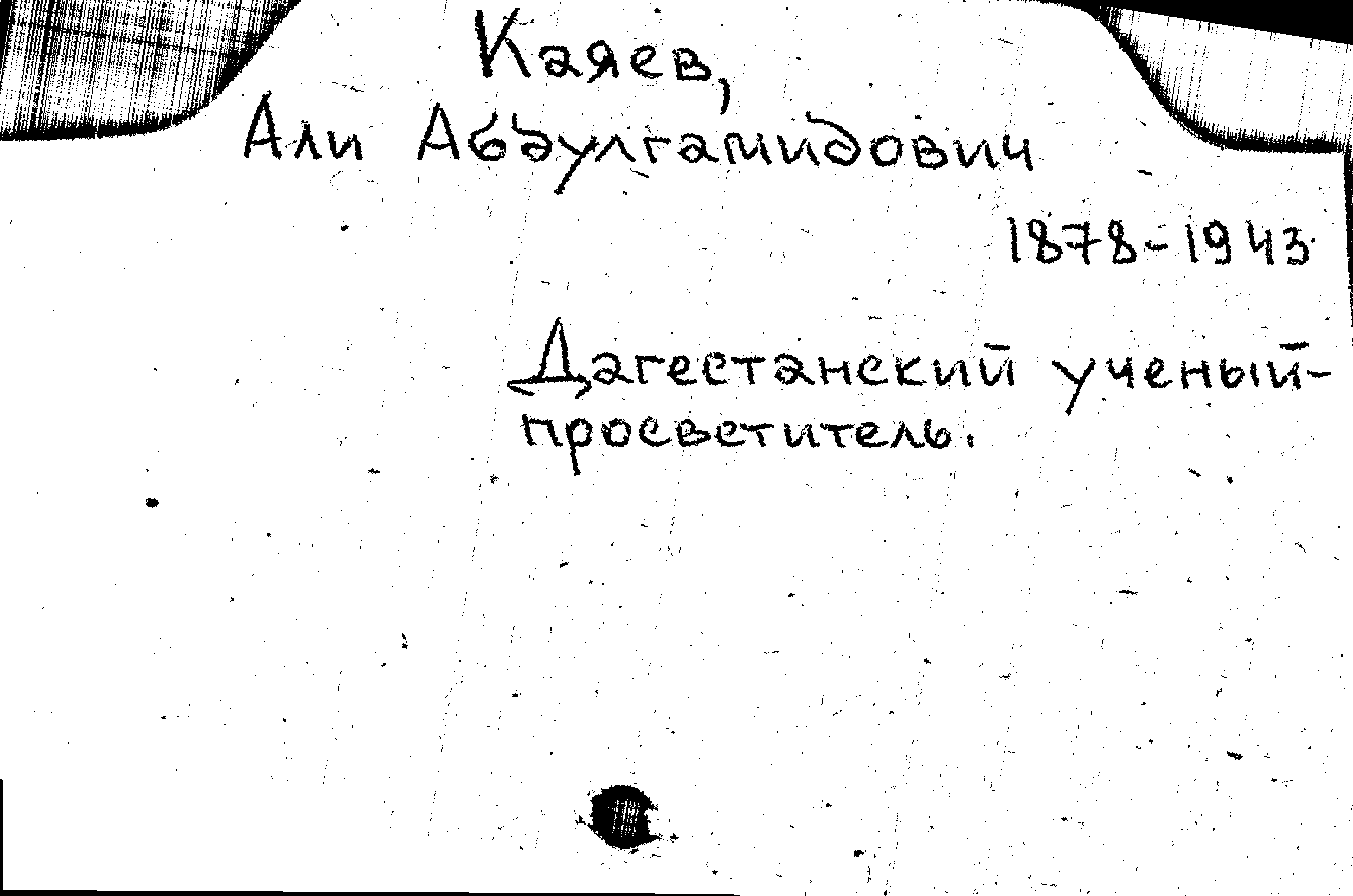 Каяев,
Али Абдулгамидович
1878-1943
Дагестанский ученый-
просветитель.